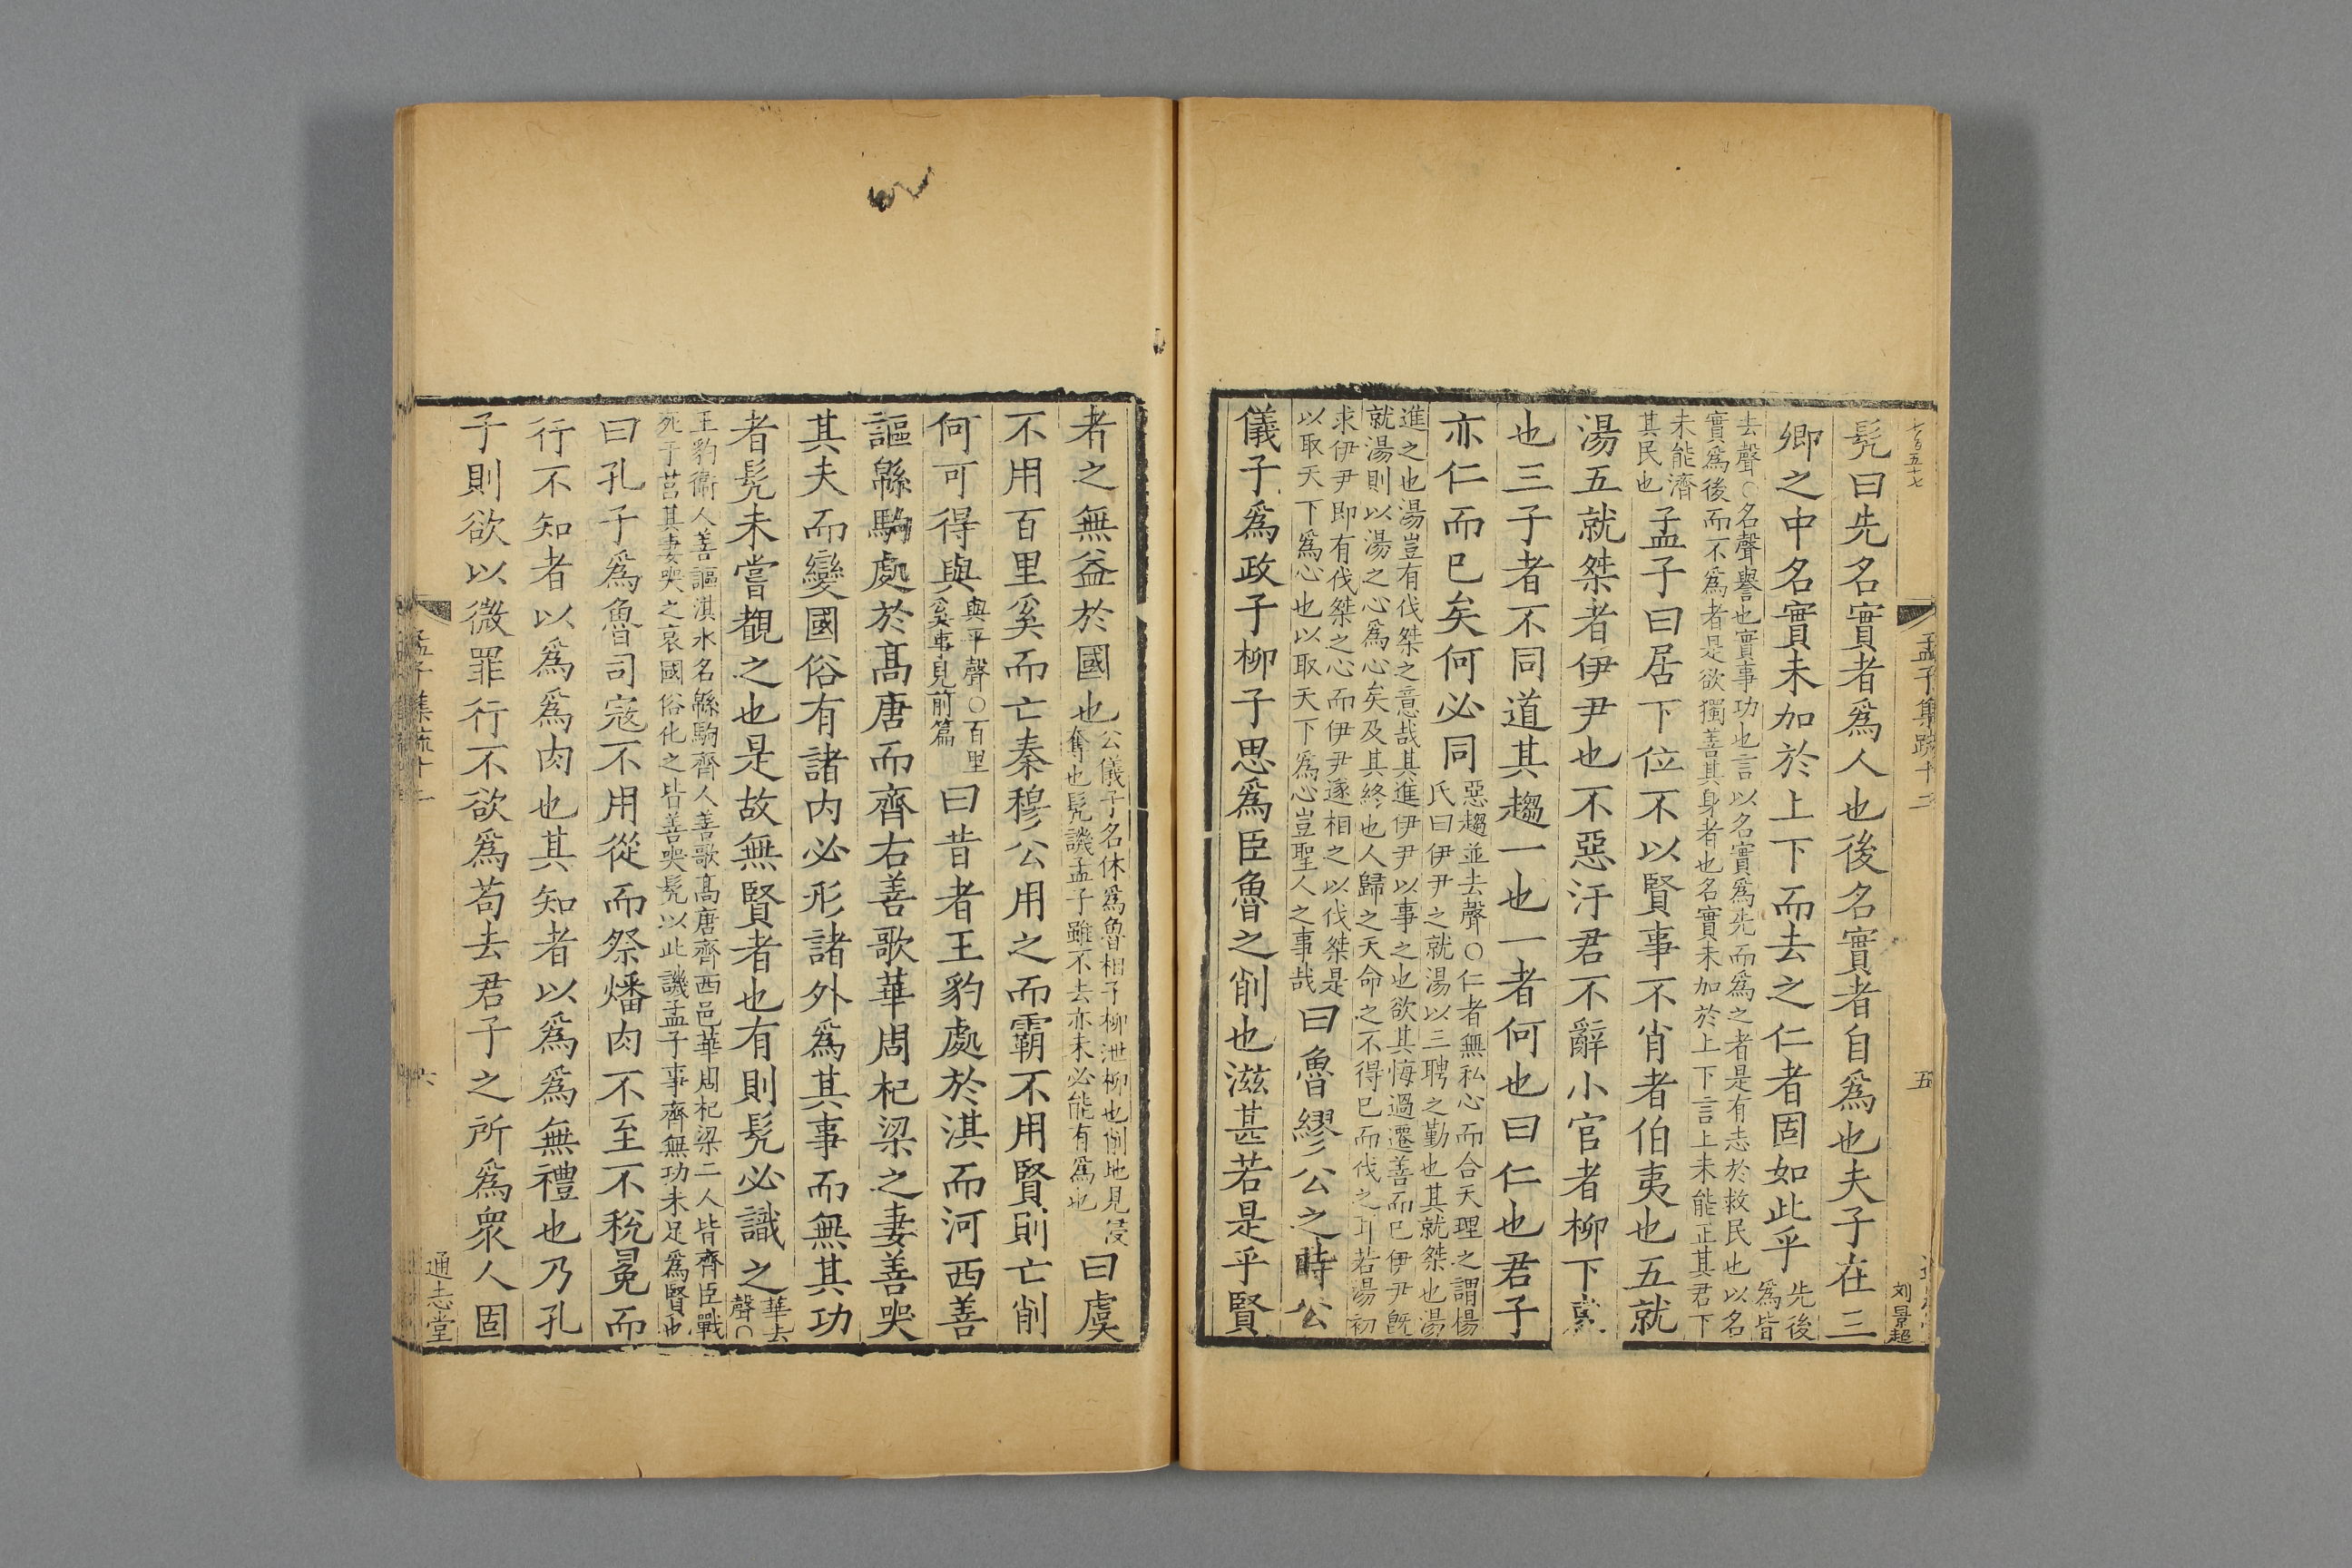 七百五十七
孟子集疏十二
五
刘景超
髡曰先名實者爲人也後名實者自爲也夫子在三
卿之中名實未加於上下而去之仁者固如此乎先後
爲皆
去聲○名聲譽也實事功也言以名實爲先而爲之者是有志於救民也以名
實爲後而不爲者是欲獨善其身者也名實未加於上下言上未能正其君下
未能濟
其民也孟子曰居下位不以賢事不肖者伯夷也五就
湯五就桀者伊尹也不惡汙君不辭小官者柳下惠
也三子者不同道其趨一也一者何也曰仁也君子
亦仁而已矣何必同惡趨並去聲○仁者無私心而合天理之謂楊
氏曰伊尹之就湯以三聘之勤也其就桀也湯
進之也湯豈有伐桀之意哉其進伊尹以事之也欲其悔過遷善而已伊尹旣
就湯則以湯之心爲心矣及其終也人歸之天命之不得已而伐之耳若湯初
求伊尹即有伐桀之心而伊尹遂相之以伐桀是
以取天下爲心也以取天下爲心豈聖人之事哉曰魯繆公之時公
儀子爲政子柳子思爲臣魯之削也滋甚若是乎賢
者之無益於國也公儀子名休爲魯相子柳泄柳也削地見侵
奪也髡譏孟子雖不去亦未必能有爲也曰虞
不用百里奚而亡秦穆公用之而霸不用賢則亡削
何可得與與平聲○百里
奚事見前篇曰昔者王豹處於淇而河西善
謳緜駒處於高唐而齊右善歌華周杞梁之妻善哭
其夫而變國俗有諸内必形諸外爲其事而無其功
者髡未嘗覩之也是故無賢者也有則髡必識之華去
聲○
王豹衞人善謳淇水名緜駒齊人善歌高唐齊西邑華周杞梁二人皆齊臣戰
死于莒其妻哭之哀國俗化之皆善哭髡以此譏孟子事齊無功未足爲賢也
曰孔子爲魯司寇不用從而祭燔肉不至不稅冕而
行不知者以爲爲肉也其知者以爲爲無禮也乃孔
子則欲以微罪行不欲爲苟去君子之所爲衆人固
孟子集疏十二
六
通志堂